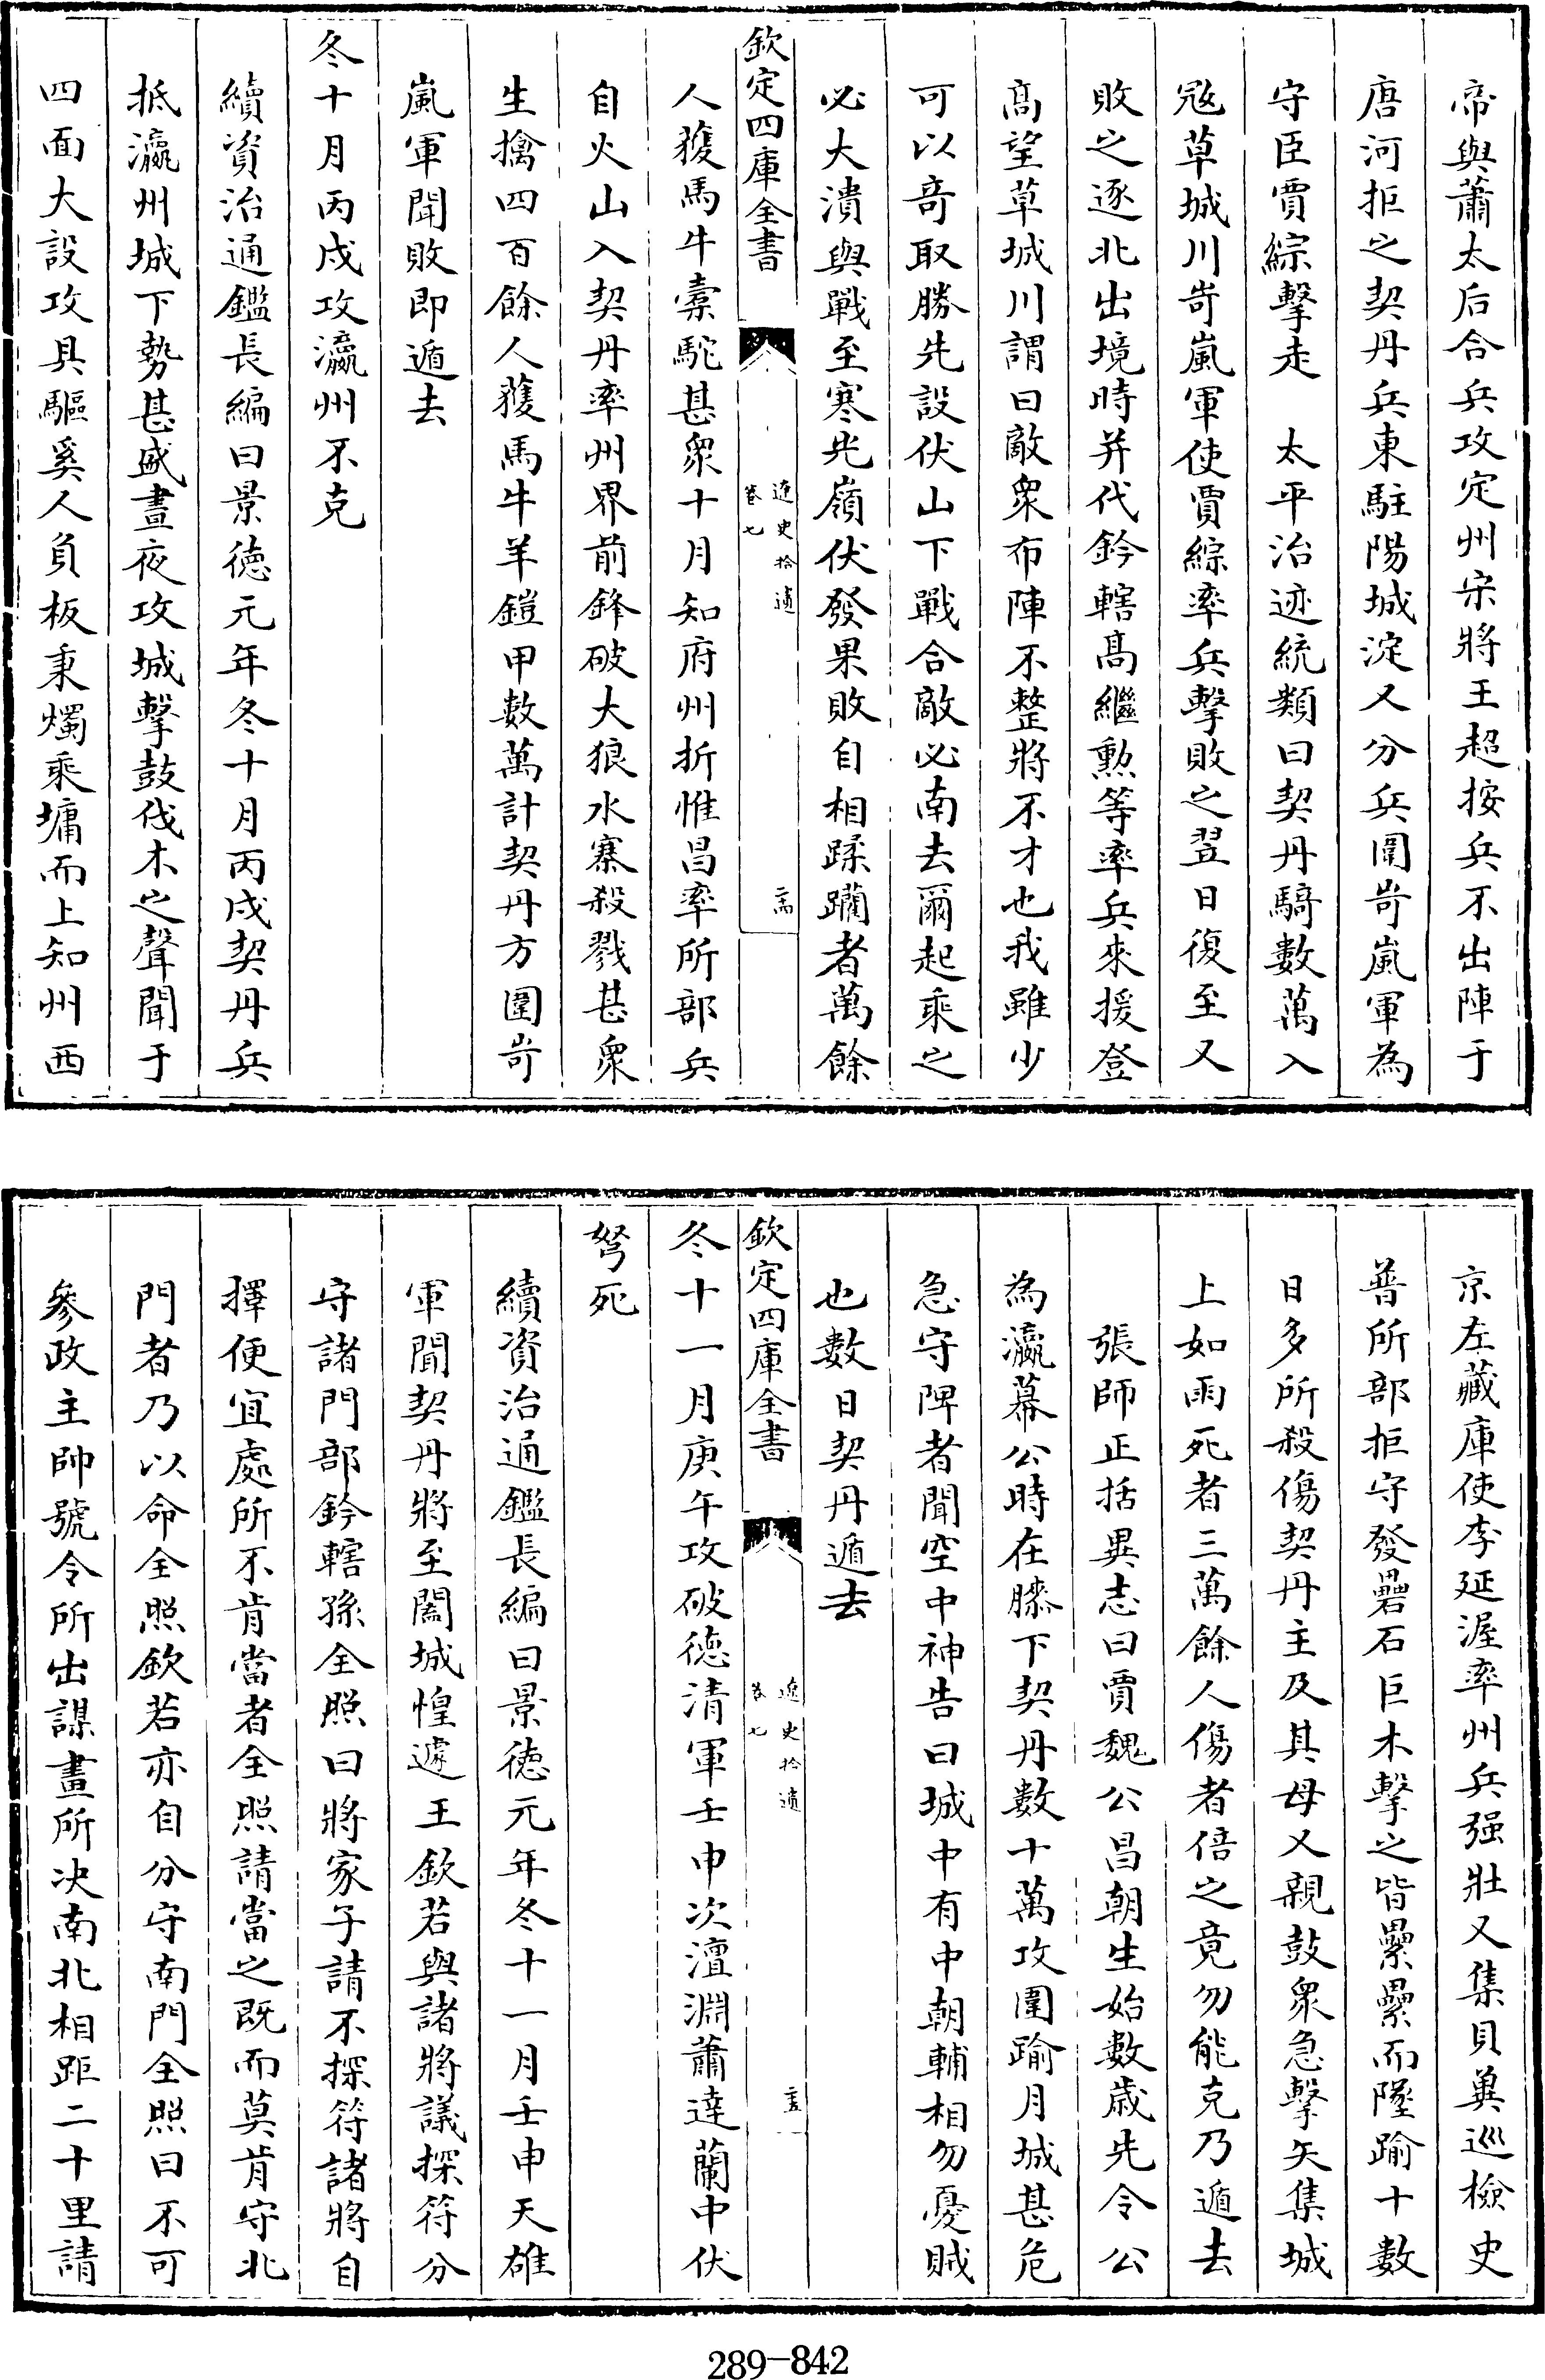 帝與蕭太后合兵攻定州宋將王超按兵不出陣于
唐河拒之契丹兵東駐陽城淀又分兵圍岢嵐軍為
守臣賈綜擊走　太平治迹統類曰契丹騎數萬入
宼草城川岢嵐軍使賈綜率兵擊敗之翌日復至又
敗之逐北出境時并代鈐轄髙繼勲等率兵來援登
髙望草城川謂曰敵衆布陣不整將不才也我雖少
可以竒取勝先設伏山下戰合敵必南去爾起乘之
必大潰與戰至寒光嶺伏發果敗自相蹂躪者萬餘
欽定四庫全書
遼史拾遺
卷七
二十四
人獲馬牛橐駝甚衆十月知府州折惟昌率所部兵
自火山入契丹率州界前鋒破大狼水寨殺戮甚衆
生擒四百餘人獲馬牛羊鎧甲數萬計契丹方圍岢
嵐軍聞敗即遁去
冬十月丙戌攻瀛州不克
續資治通鑑長編曰景徳元年冬十月丙戌契丹兵
抵瀛州城下勢甚盛晝夜攻城擊鼓伐木之聲聞于
四面大設攻具驅奚人負板秉燭乘墉而上知州西
京左藏庫使李延渥率州兵强壯又集貝冀巡檢史
普所部拒守發礨石巨木擊之皆纍纍而墜踰十數
日多所殺傷契丹主及其母又親鼓衆急擊矢集城
上如雨死者三萬餘人傷者倍之竟勿能克乃遁去
張師正括異志曰賈魏公昌朝生始數歳先令公
為瀛幕公時在膝下契丹數十萬攻圍踰月城甚危
急守陴者聞空中神告曰城中有中朝輔相勿憂賊
也數日契丹遁去
欽定四庫全書
遼史拾遺
卷七
二十五
冬十一月庚午攻破徳清軍壬申次澶淵蕭達蘭中伏
弩死
續資治通鑑長編曰景徳元年冬十一月壬申天雄
軍聞契丹將至闔城惶遽王欽若與諸將議探符分
守諸門部鈐轄孫全照曰將家子請不探符諸將自
擇便宜處所不肯當者全照請當之既而莫肯守北
門者乃以命全照欽若亦自分守南門全照曰不可
參政主帥號令所出謀畫所决南北相距二十里請
289-842